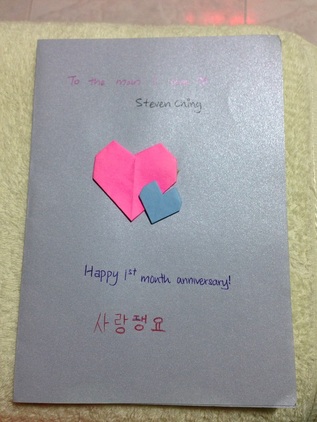 To the man
Steven Ching
Happy 1st month anniversary!
사랑쟁요